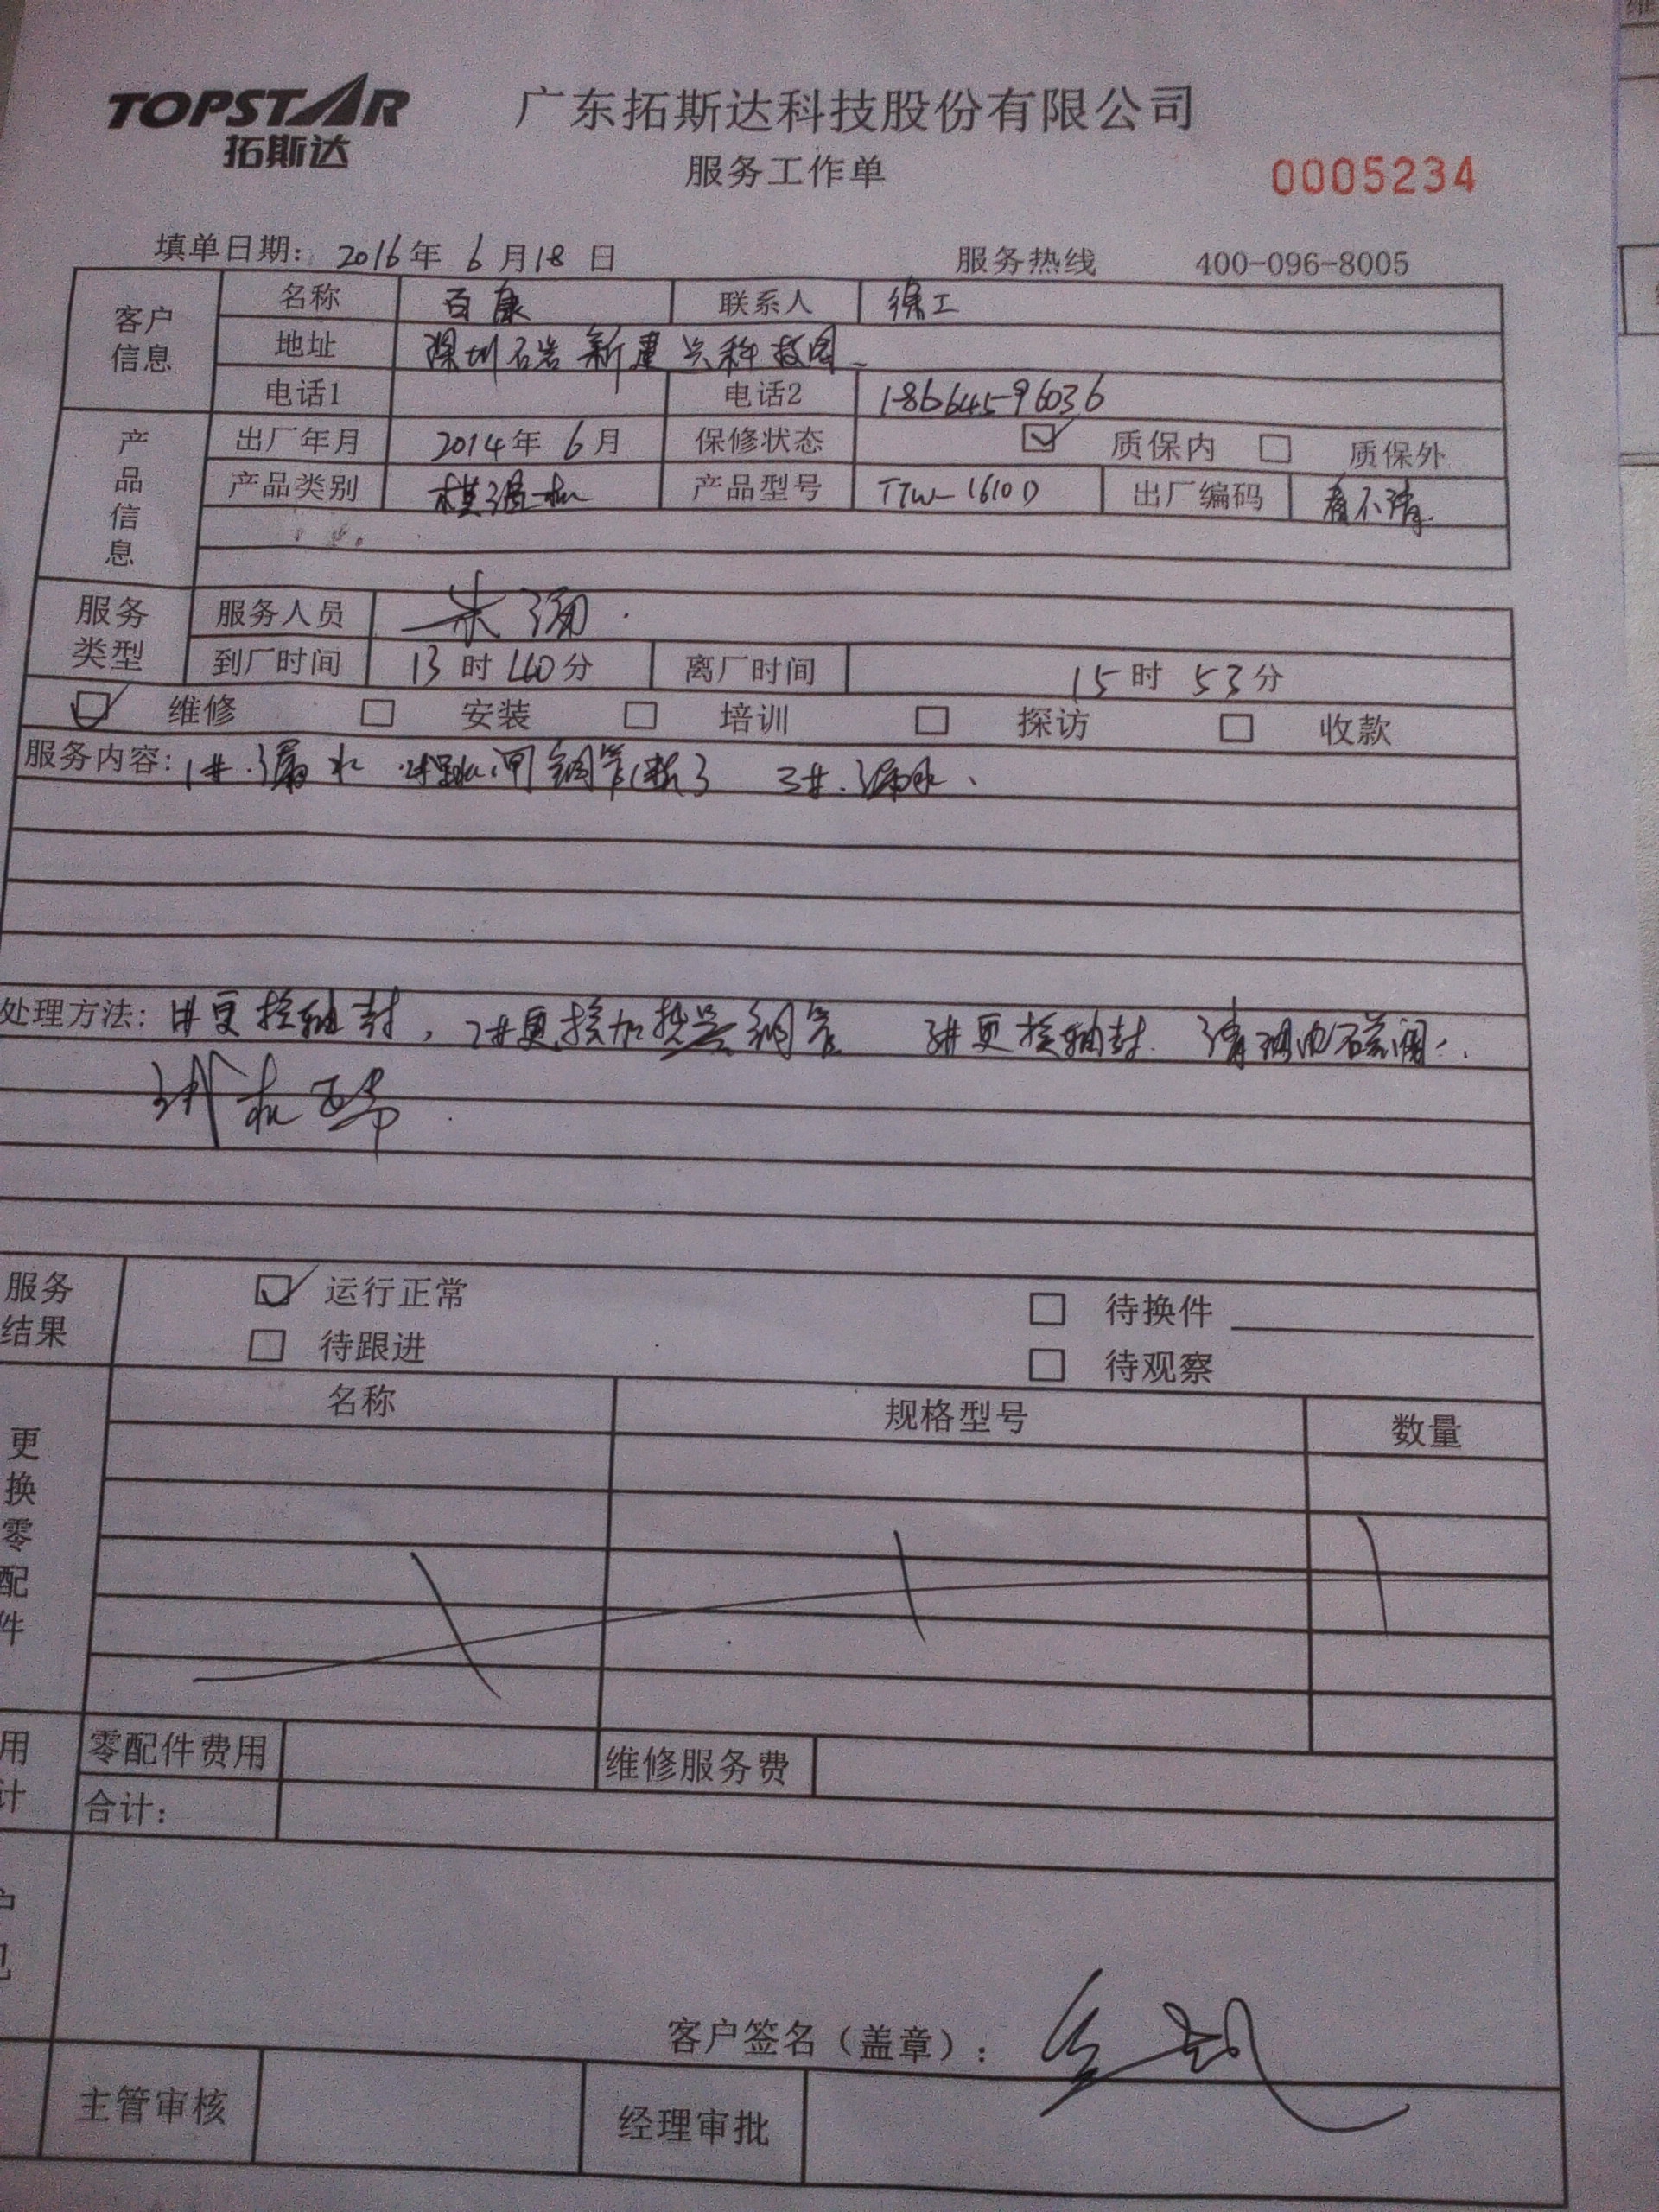 TOPSTAR
拓斯达
广东拓斯达科技股份有限公司
服务工作单
0005234
填单日期: 2016年 6月18日 服务热线 400-096-8005
客户信息 名称 百康 联系人 徐工
地址 深圳石岩新建兴科技园
电话1 电话2 18664596036
产品信息 出厂年月 2014年 6月 保修状态 质保内 质保外
产品类别 模温机 产品型号 TTW-1610D 出厂编码 看不清
服务类型 服务人员 朱
到厂时间 13时40分 离厂时间 15时53分
维修 安装 培训 探访 收款
服务内容: 1#.漏水 2#跳闸 铜管 了 3#.漏水、
处理方法: 1#更换轴封, 2#更换加热 铜管 3#更换轴封. 清 电磁阀
试机正常
服务结果 运行正常 待换件
待跟进 待观察
更换零配件 名称 规格型号 数量
用 零配件费用 维修服务费
计 合计:
客户签名(盖章):
主管审核 经理审批